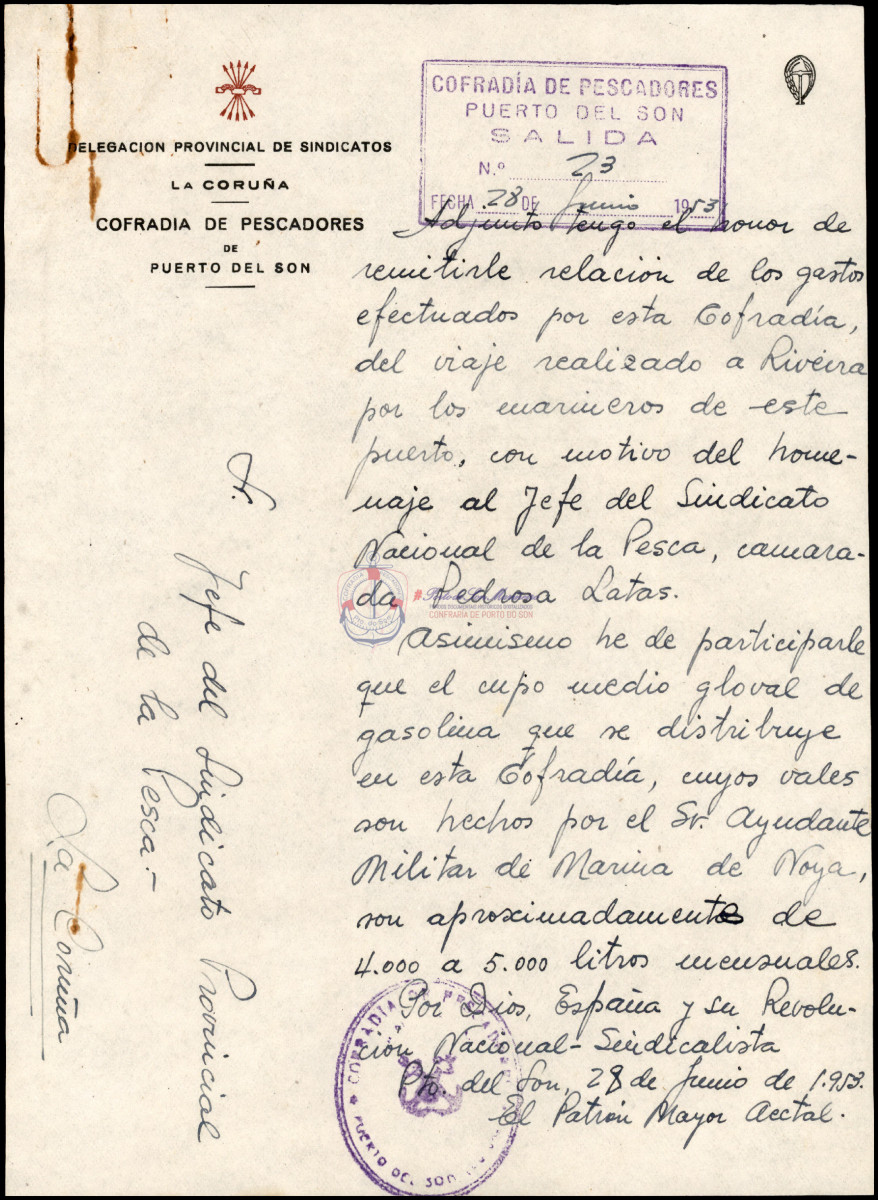 DELEGACION PROVINCIAL DE SINDICATOS
LA CORUÑA
COFRADIA DE PESCADORES
DE
PUERTO DEL SON
COFRADÍA DE PESCADORES
PUERTO DEL SON
SALIDA
N.º 23
FECHA 28 DE Junio 1953
Adjunto tengo el honor de
remitirle relación de los gastos
efectuados por esta Cofradía,
del viaje realizado a Riveira
por los marineros de este
puerto, con motivo del home-
naje al Jefe del Sindicato
Nacional de la Pesca, camara-
da Pedrosa Latas.
Asimismo he de participarle
que el cupo medio gloval de
gasolina que se distribuye
en esta Cofradía, cuyos vales
son hechos por el Sr. Ayudante
Militar de Marina de Noya,
son aproximadamente de
4.000 a 5.000 litros mensuales.
Por Dios, España y su Revolu-
ción Nacional-Sindicalista
Pto. del Son, 28 de Junio de 1.953.
El Patrón Mayor Acctal.
Sr. Jefe del Sindicato Provincial
de la Pesca.-
La Coruña
COFRADIA DE PESCADORES
PUERTO DEL SON
FONDOS DOCUMENTAIS HISTÓRICOS DIXITALIZADOS
CONFRARÍA DE PORTO DO SON